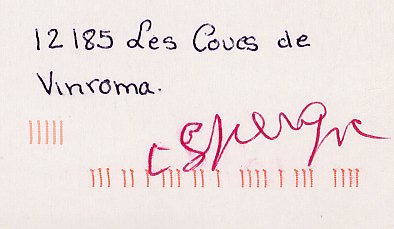 12185 Les Coves de
Vinroma.